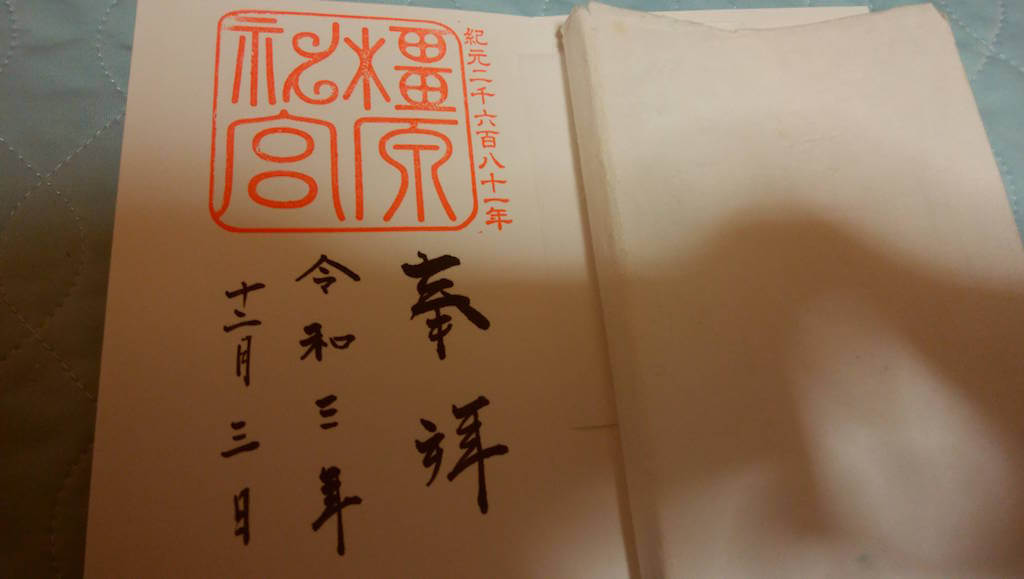 紀元二千六百八十一年
橿原
神宮
奉拝
令和三年
十二月三日